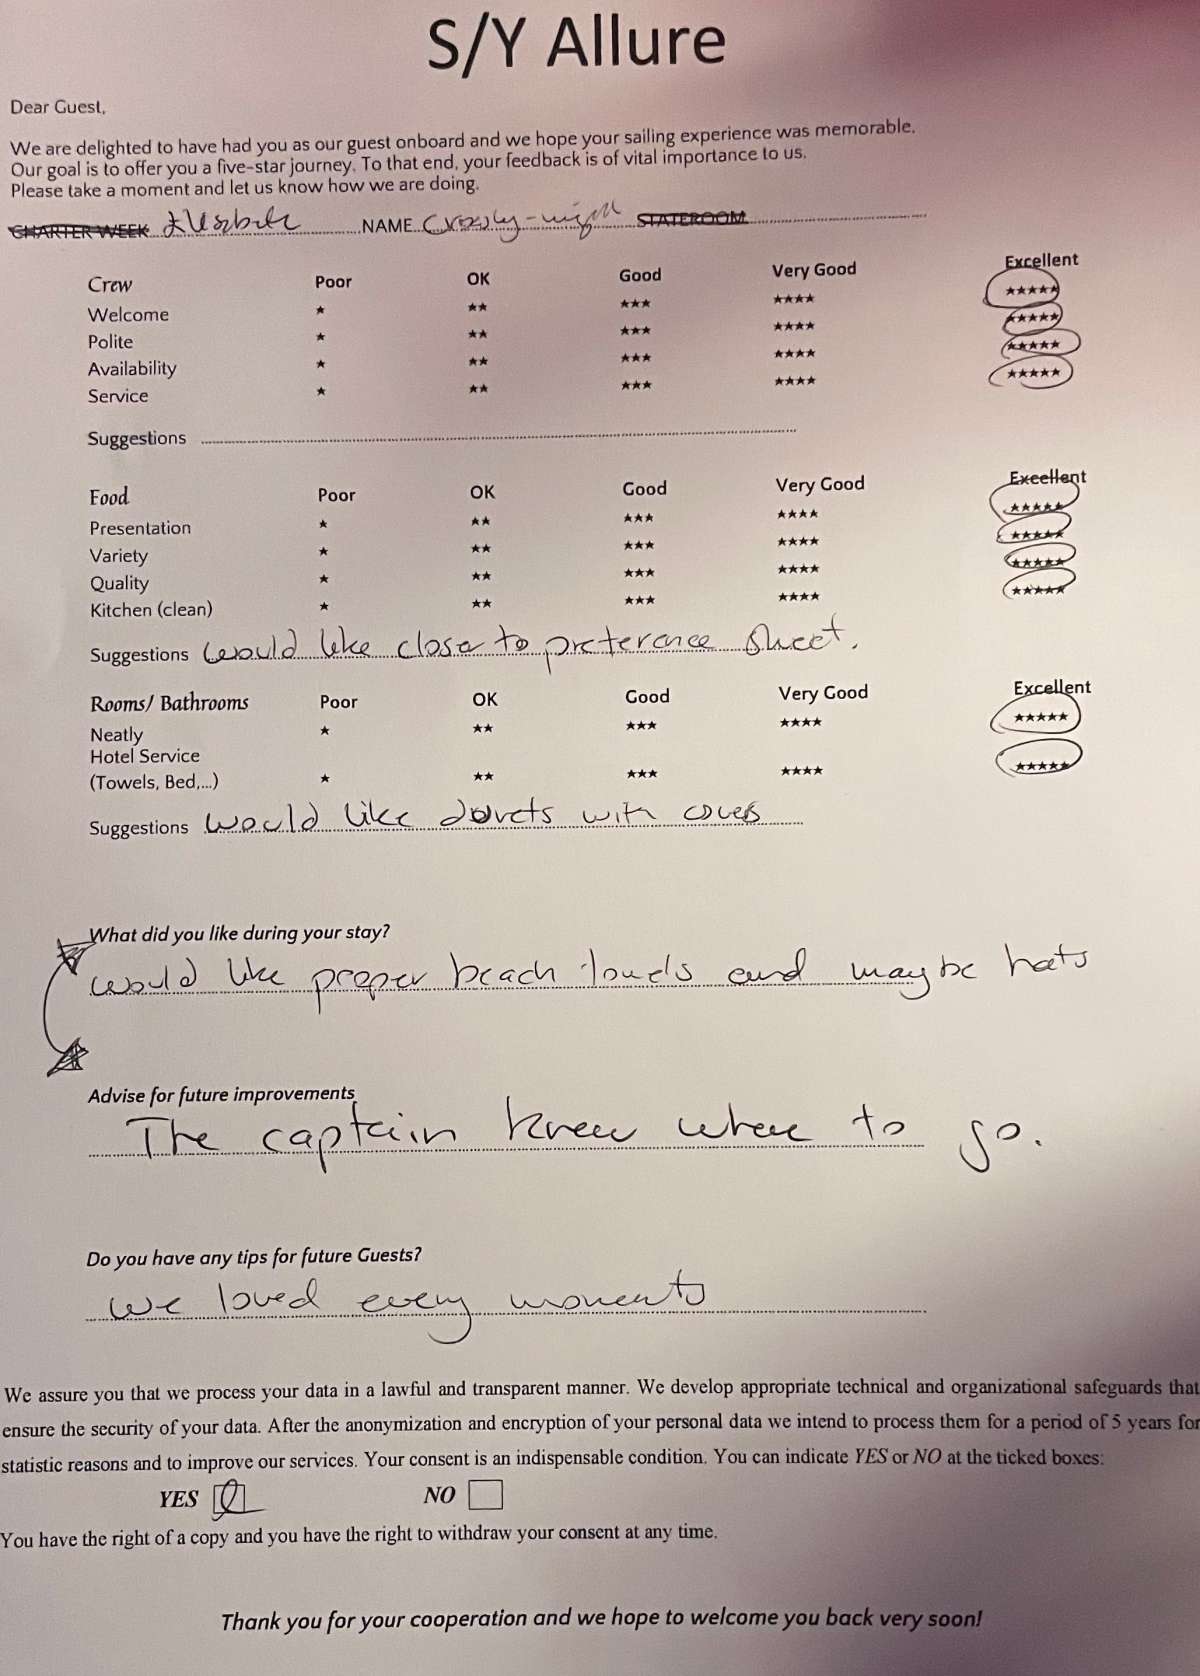 S/Y Allure
Dear Guest,
We are delighted to have had you as our guest onboard and we hope your sailing experience was memorable.
Our goal is to offer you a five-star journey. To that end, your feedback is of vital importance to us.
Please take a moment and let us know how we are doing.
CHARTER WEEK NAME STATEROOM
Crew Poor OK Good Very Good Excellent
Welcome ★ ★★ ★★★ ★★★★ ★★★★★
Polite ★ ★★ ★★★ ★★★★ ★★★★★
Availability ★ ★★ ★★★ ★★★★ ★★★★★
Service ★ ★★ ★★★ ★★★★ ★★★★★
Suggestions
Food Poor OK Good Very Good Excellent
Presentation ★ ★★ ★★★ ★★★★ ★★★★★
Variety ★ ★★ ★★★ ★★★★ ★★★★★
Quality ★ ★★ ★★★ ★★★★ ★★★★★
Kitchen (clean) ★ ★★ ★★★ ★★★★ ★★★★★
Suggestions would like closer to preference sheet.
Rooms/ Bathrooms Poor OK Good Very Good Excellent
Neatly ★ ★★ ★★★ ★★★★ ★★★★★
Hotel Service
(Towels, Bed,...) ★ ★★ ★★★ ★★★★ ★★★★★
Suggestions would like duvets with covers
What did you like during your stay?
would like proper beach towels and maybe hats
Advise for future improvements
The captain knew where to go.
Do you have any tips for future Guests?
we loved every moments
We assure you that we process your data in a lawful and transparent manner. We develop appropriate technical and organizational safeguards that
ensure the security of your data. After the anonymization and encryption of your personal data we intend to process them for a period of 5 years for
statistic reasons and to improve our services. Your consent is an indispensable condition. You can indicate YES or NO at the ticked boxes:
YES NO
You have the right of a copy and you have the right to withdraw your consent at any time.
Thank you for your cooperation and we hope to welcome you back very soon!